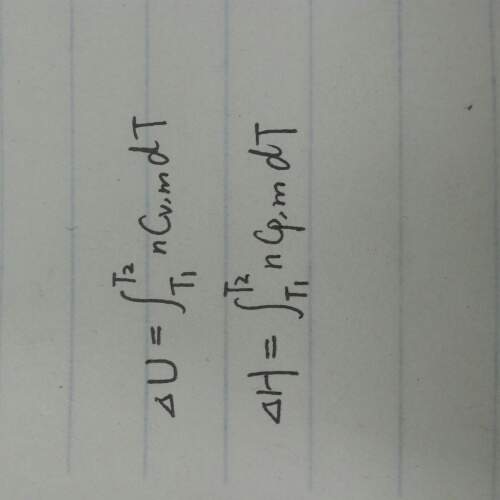 ΔU = ∫_{T1}^{T2} nCv,m dT
ΔH = ∫_{T1}^{T2} nCp,m dT